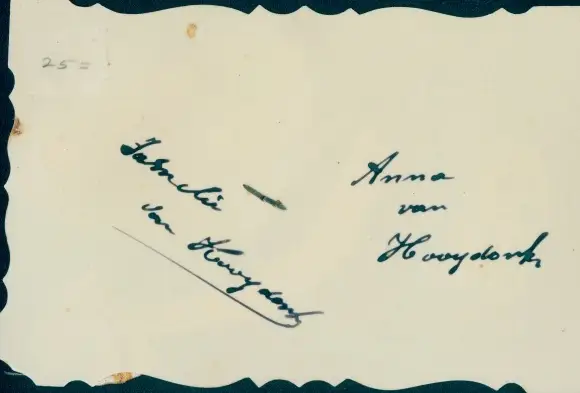 25=
Familie
van Hooydonk
Anna
van
Hooydonk